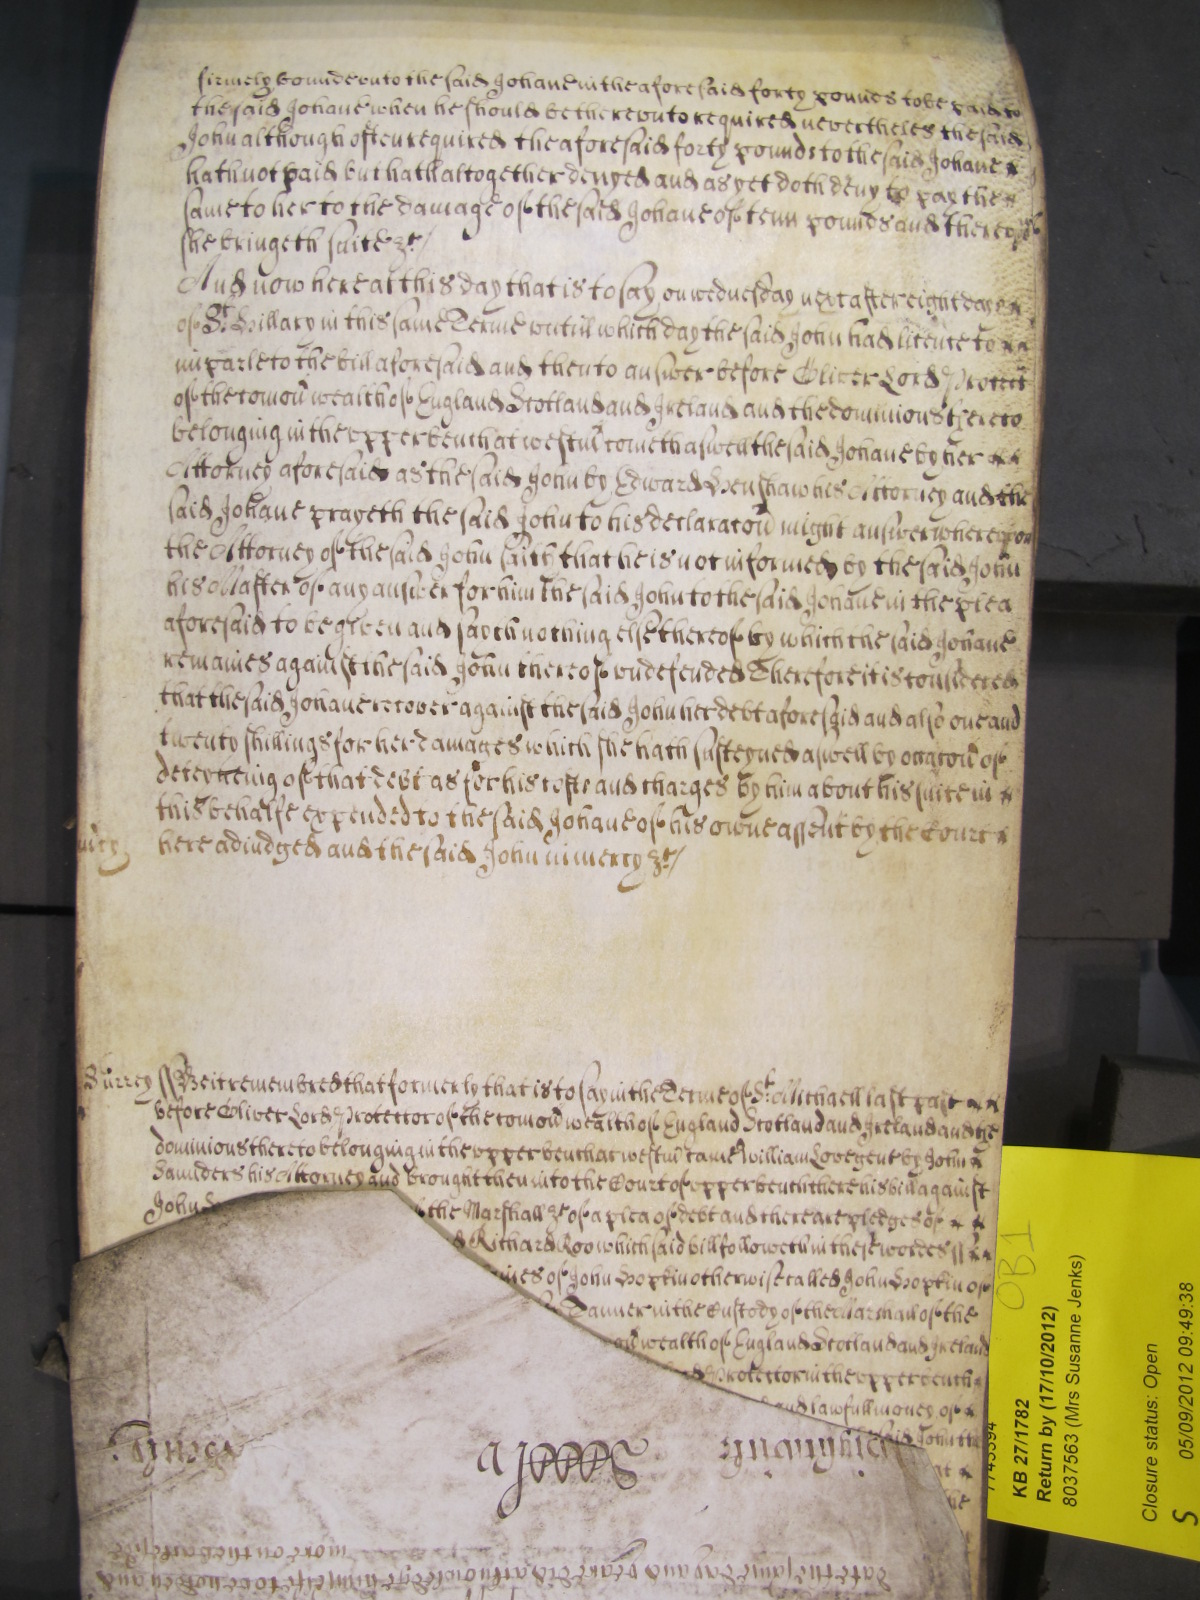 firmely bounde unto the said Johane in the aforesaid forty pounds to be paid to
the said Johane when he should be thereunto required nevertheles the said
John although often required the aforesaid forty pounds to the said Johane
hath not paid but hath altogether denyed and as yet doth deny to pay the
same to her to the damage of the said Johane of tenn pounds and thereof
she bringeth suite &c/
And now here at this day that is to say on wednesday next after eight dayes
of St. Hillary in this same Terme untill which day the said John had licence to
imparle to the bill aforesaid and then to answer before Oliver Lord Protect
of the comon wealth of England Scotland and Ireland and the dominions thereto
belonging in the upper bench at westm cometh aswell the said Johane by her
Attorney aforesaid as the said John by Edward Henshaw his Attorney and the
said Johane prayeth the said John to his declaracon might answer whereupon
the Attorney of the said John saith that he is not informed by the said John
his Master of any answer for him the said John to the said Johane in the plea
aforesaid to be given and sayth nothing else thereof by which the said Johane
remaines against the said John thereof undefended Therefore it is considered
that the said Johane recover against the said John her debt aforesaid and also one and
twenty shillings for her damages which she hath susteyned aswell by occacon of
deteyneing of that debt as for his costs and charges by him about his suite in
this behalfe expended to the said Johane of his owne assent by the Court
mcy here adiudged and the said John in mercy &c/
Surrey Be it remembred that formerly that is to say in the Terme of St. Michaell last past
before Oliver Lord Protector of the comon wealth of England Scotland and Ireland and the
dominions thereto belonging in the upper bench at westm came William Lovegent by John
Saunders his Attorney and brought then into the Court of upper bench there his bill against
John the Marshall &c of a plea of debt and there are pledges of
d Richard Roo which said bill followeth in these wordes
of John Hopkin otherwise called John Hopkin of
Tanner in the Custody of the Marshall of the
wealth of England Scotland and Ireland
Protector in the upper bench
and lawfull money of
said John
at
the
OB1
KB 27/1782
Return by (17/10/2012)
8037563 (Mrs Susanne Jenks)
Closure status: Open
S 05/09/2012 09:49:38
more on the backside
date the same day and yeare did acknowledge himselfe to be holden and